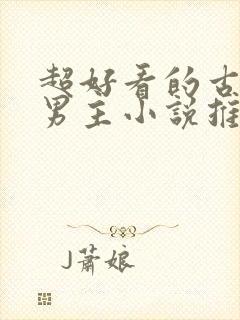 超好看的古
男主小说推
J萧娘